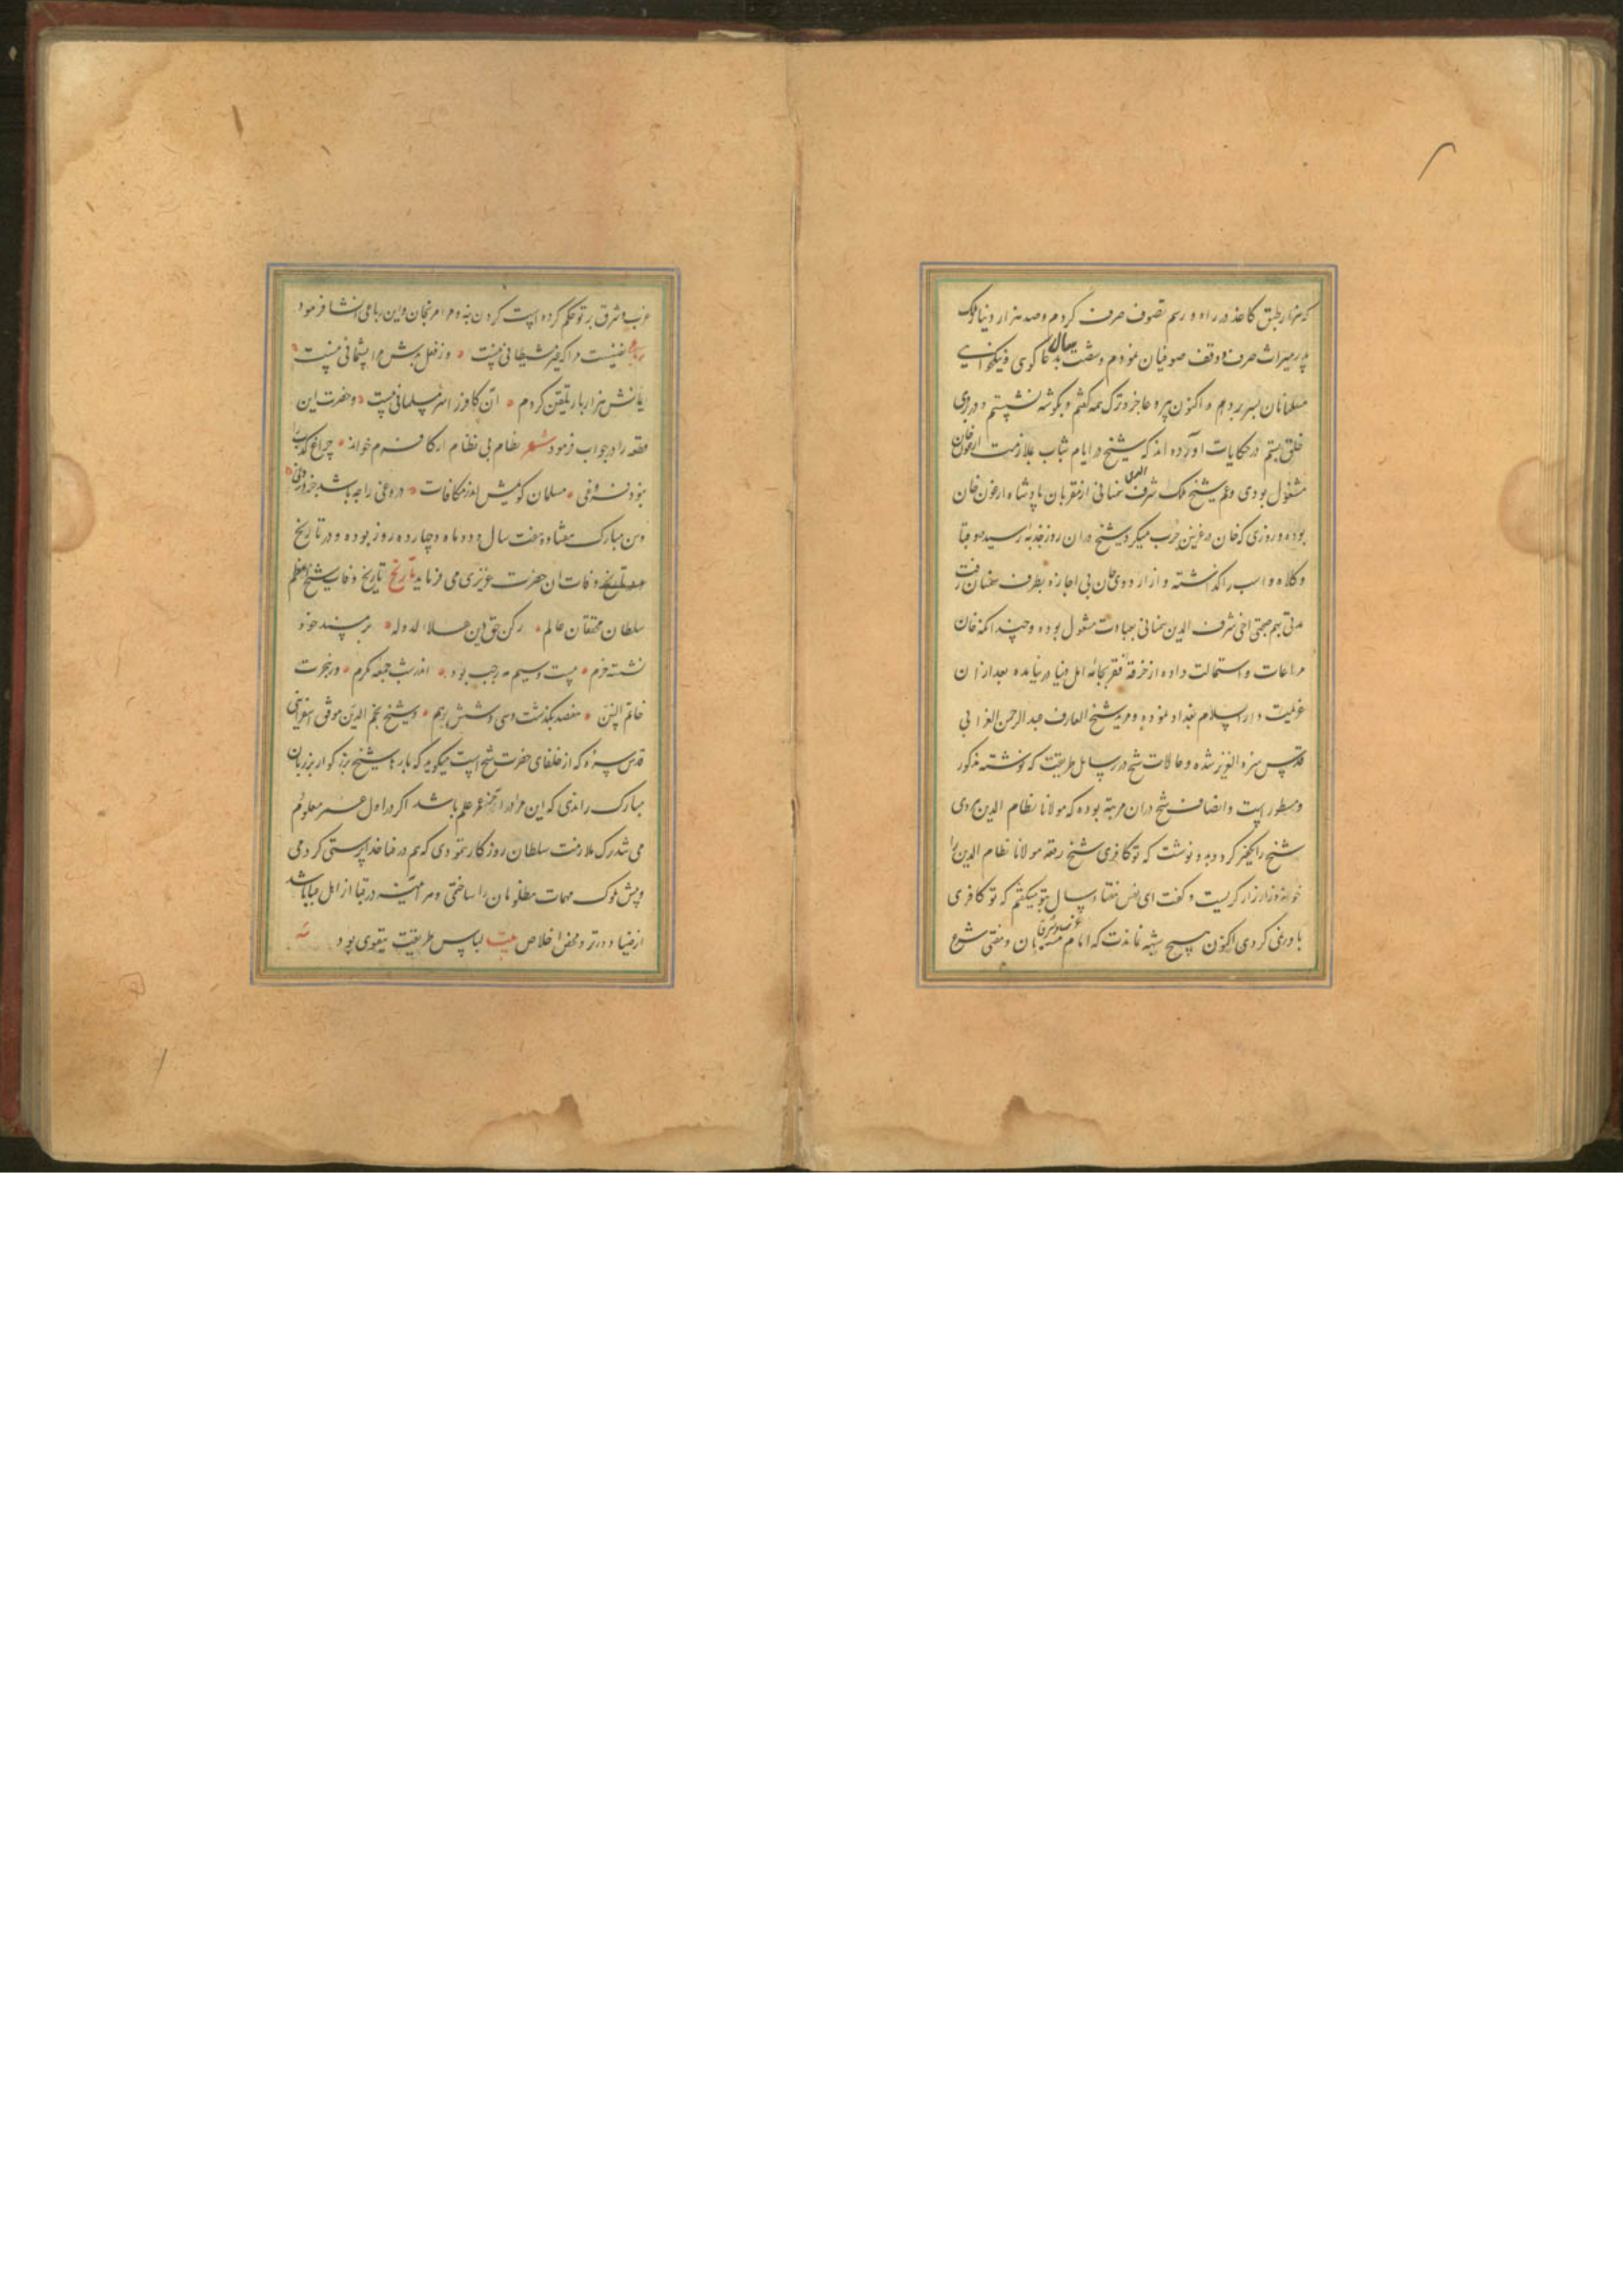 که هزار طبق کاغذ در راه و رسم تصوف صرف کردم و صد هزار دینار ملک
پدر میراث صرف و وقف صوفیان نمودم و شصت سال بدعاکوی و نیکخواهی
مسلمانان بسر بردم و اکنون پیر و عاجز و ترک همه کفتم و بکوشه نشستم و در بروی
خلق بستم در حکایات آورده اند که شیخ در ایام شباب بملازمت ارغون خان
مشغول بودی و عم شیخ ملک شرف الدین سمنانی از مقربان پادشاه ارغون خان
بوده و روزی که خان در غزین حرب میکرد شیخ در ان روز جذبه رسید و قبا
و کلاه و اسب را کذاشته و از اردوی خان بی اجازه بطرف سمنان رفت
مدتی بهم صحبتی اخی شرف الدین سمنانی بعبادت مشغول بوده و چندانکه خان
مراعات و استمالت داده از خرقه فقر بجامه اهل دنیا در نیامده بعد از ان
عزیمت دار السلام بغداد نموده و مرید شیخ العارف عبد الرحمن
قدس سره العزیز شده و حالات شیخ در رسایل طریقت که نوشته مذکور
و مسطور است و انصاف شیخ در ان مرتبه بوده که مولانا نظام الدین هروی
شیخ را تکفیر کرد و بدو نوشت که تو کافری شیخ رقعه مولانا نظام الدین را
خوانده زار زار کریست و کفت ای نفس هفتاد سال بتو میکفتم که تو کافری
باور نمی کردی اکنون هیچ شبهه نماندت که امام مسلمانان و مفتی شرع
غرب و شرق بر تو حکم کرده است کردن بنه و مرا مرنجان و این رباعی انشا فرمود
رباعی نفسیست مرا که غیر شیطانی نیست وز فعل بدش مرا پشیمانی نیست
ایمانش هزار بار تلقین کردم این کافر را سر مسلمانی نیست و حضرت این
قطعه را در جواب فرمود شعر نظام بی نظام ار کافرم خواند چراغ کذب را
نبود فروغی مسلمان کویمش اندر مکافات دروغی را چه باشد جز دروغی
و سن مبارک هفتاد و هفت سال و دو ماه و چهارده روز بوده و در تاریخ
وفات ان حضرت عزیزی می فرماید تاریخ تاریخ وفات شیخ اعظم
سلطان محققان عالم رکن حق و دین علاء الدوله بر مسند خود
نشسته خرم بیست و سیم مه رجب بود اندر شب جمعه مکرم در هجرت
خاتم النبیین هفصد بکذشت و سی و شش هم و شیخ نجم الدین موفق اسفراینی
قدس سره که از خلفای حضرت شیخ است میکوید که بارها شیخ بزرکوار بر زبان
مبارک راندی که این مرا در اخر عمر علم باشد اکر در اول عمر معلوم
می شد ترک ملازمت سلطان روزکار ننمودی که هم در قبا خدا پرستی کردمی
و پیش ملوک مهمات مظلومان را ساختی و مرا همیشه در قبا از اهل عبا باشد
از ریا دورتر و محض اخلاص بیت لباس طریقت بتقوی بود